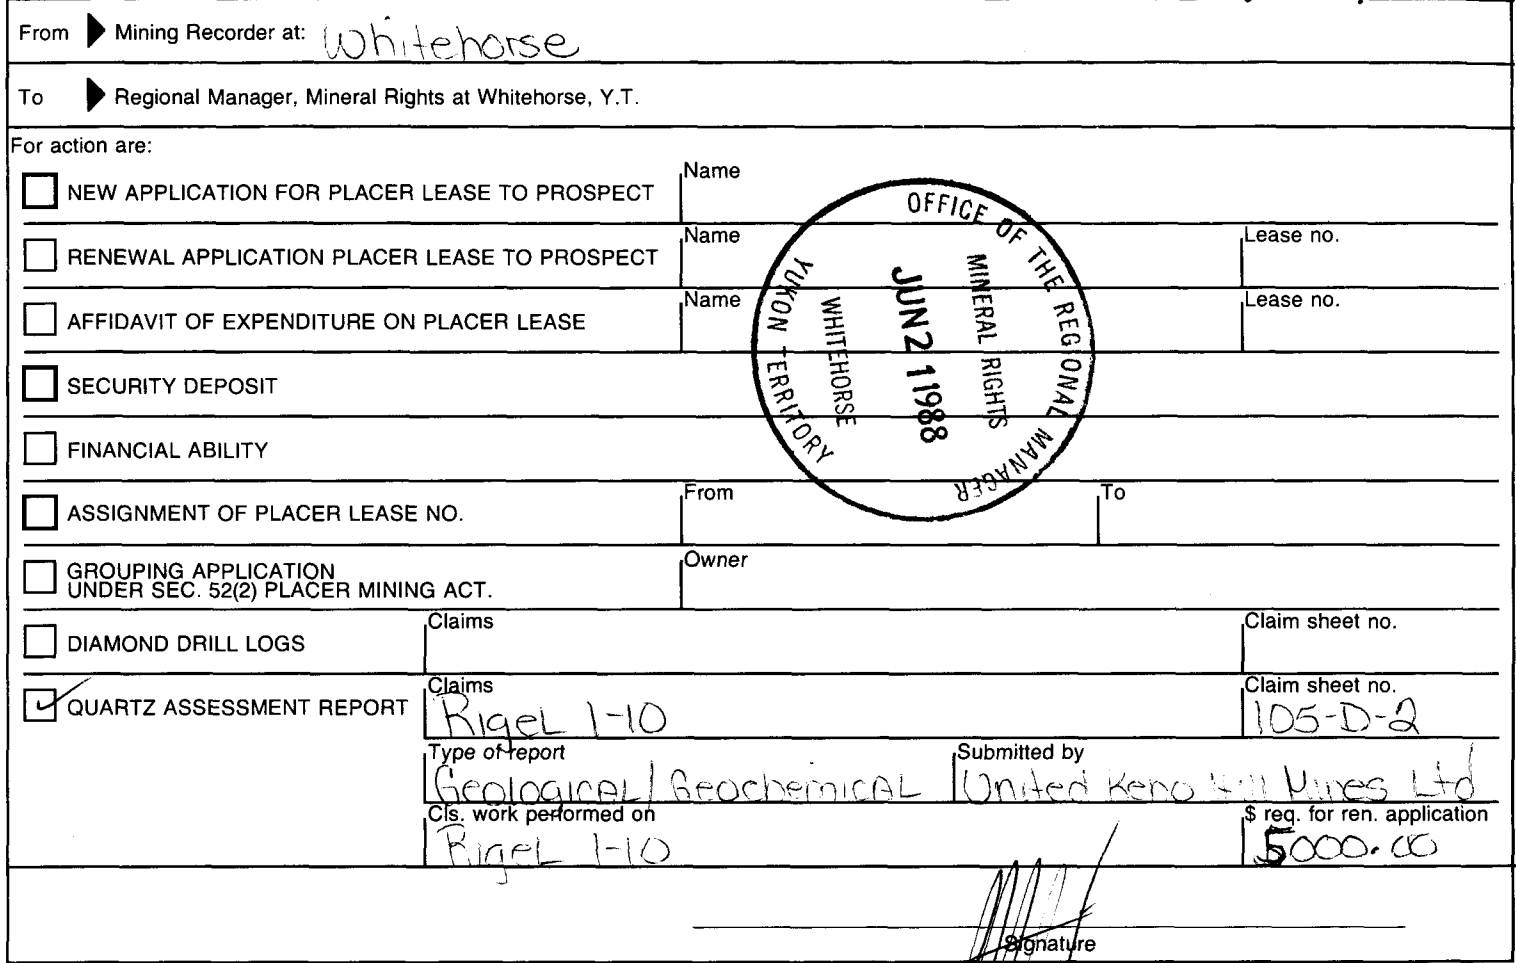 From Mining Recorder at: Whitehorse
To Regional Manager, Mineral Rights at Whitehorse, Y.T.
For action are:
NEW APPLICATION FOR PLACER LEASE TO PROSPECT Name
RENEWAL APPLICATION PLACER LEASE TO PROSPECT Name Lease no.
AFFIDAVIT OF EXPENDITURE ON PLACER LEASE Name Lease no.
SECURITY DEPOSIT
FINANCIAL ABILITY
ASSIGNMENT OF PLACER LEASE NO. From To
GROUPING APPLICATION
UNDER SEC. 52(2) PLACER MINING ACT. Owner
DIAMOND DRILL LOGS Claims Claim sheet no.
QUARTZ ASSESSMENT REPORT Claims Claim sheet no.
Rigel 1-10 105-D-2
Type of report Submitted by
Geological/Geochemical United Keno Hill Mines Ltd
Cls. work performed on $ req. for ren. application
Rigel 1-10 5000.00
Signature
OFFICE OF THE REGIONAL MANAGER
MINERAL RIGHTS
JUN 21 1988
WHITEHORSE
YUKON TERRITORY